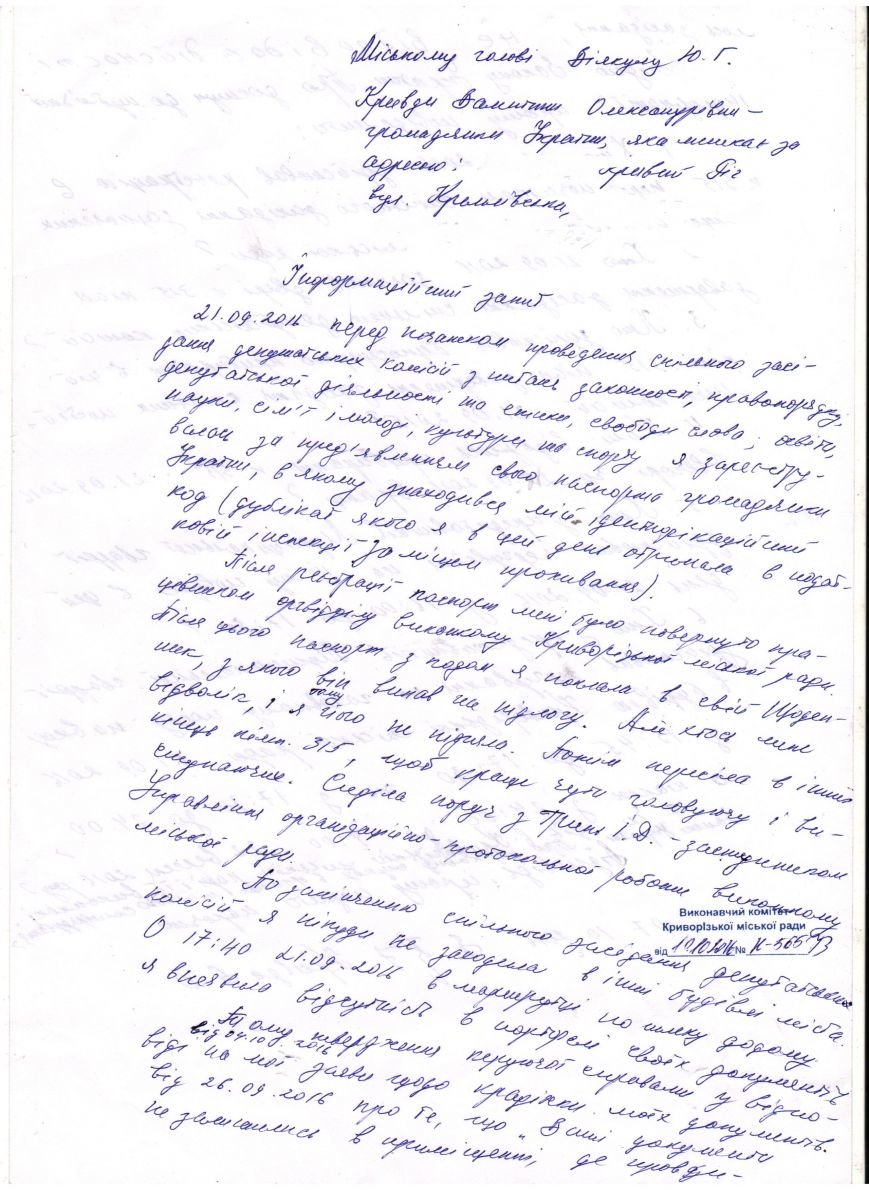 Міському голові Вілкулу Ю. Г.
Кривди Валентини Олександрівни –
громадянки України, яка мешкає за
адресою: Кривий Ріг
вул. Кремлівська,
Інформаційний запит
21.09.2016 перед початком проведення спільного засі-
дання депутатських комісій з питань законності, правопорядку,
депутатської діяльності та етики, свободи слова; освіти,
науки, сім'ї і молоді, культури та спорту я зареєстру-
валась за пред'явленням свого паспорта громадянки
України, в якому знаходився мій ідентифікаційний
код (дублікат якого я в цей день отримала в подат-
ковій інспекції за місцем проживання).
Після реєстрації паспорт мені було повернуто пра-
цівником оргвідділу виконкому Криворізької міської ради.
Після цього паспорт з кодом я поклала в свій Щоден-
ник, з якого він випав на підлогу. Але хтось мене
відволік, і тому я його не підняла. Потім пересіла в інший
кінець прим. 315, щоб краще чути головуючу і ви-
ступаючих. Сиділа поруч з І.Д. – заступником
Управління організаційно-протокольної роботи виконкому
міської ради.
По закінченню спільного засідання депутатських
комісій я нікуди не заходила в інші будівлі міста.
О 17:40 21.09.2016 в маршрутці по шляху додому
я виявила відсутність в портфелі своїх документів
Тому твердження керуючої справами у відпо-
віді від 04.10.2016 на мої заяви щодо крадіжки моїх документів.
від 26.09.2016 про те, що "Ваші документи
не залишились в приміщенні, де проводи-
Виконавчий комітет
Криворізької міської ради
від 10.10.2016 №